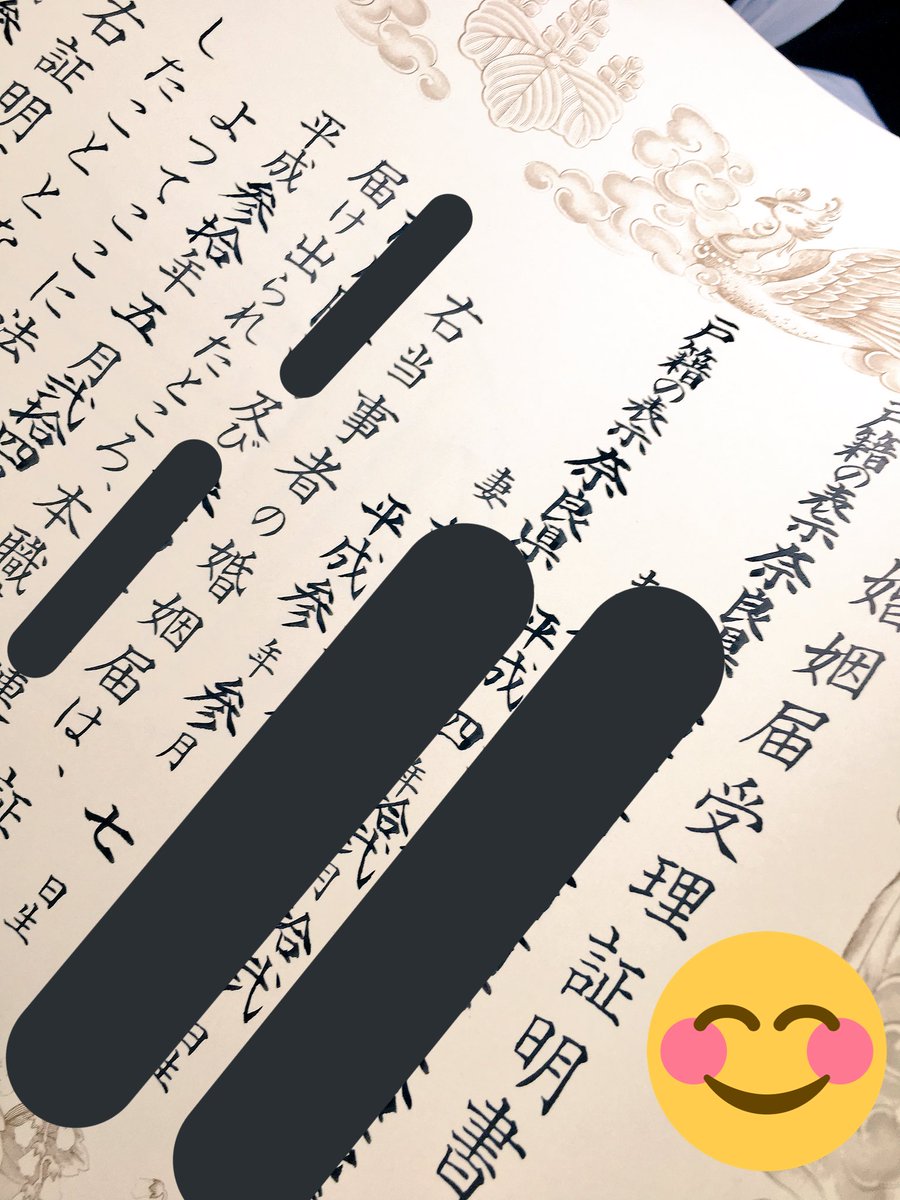 婚姻届受理証明書
戸籍の表示 奈良県
平成四年拾弐月拾弐日生
戸籍の表示 奈良県
妻
平成参年参月七日生
右当事者の婚姻届は、
及び
届け出られたところ、本職
平成参拾年五月弐拾四
よつてここに法
したことと
右証明